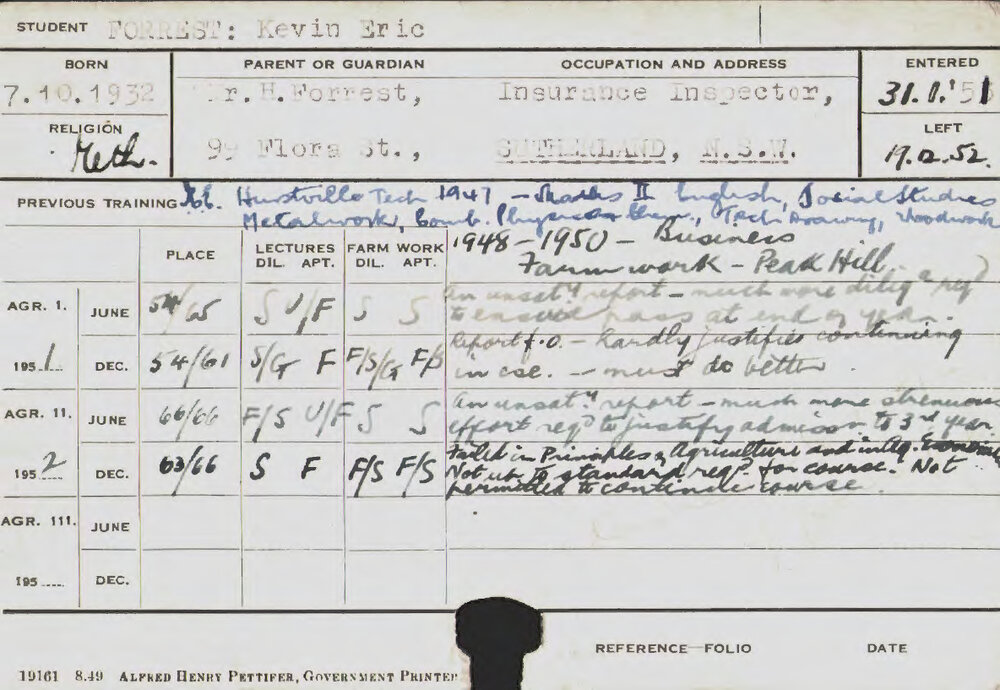 STUDENT FORREST: Kevin Eric
BORN PARENT OR GUARDIAN OCCUPATION AND ADDRESS ENTERED
7.10.1932 Mr. H. Forrest, Insurance Inspector, 31.1.'51
RELIGION LEFT
Meth. 99 Flora St., SUTHERLAND, N.S.W. 19.12.52.
PREVIOUS TRAINING Hurstville Tech 1947 - II English, Social Studies
Metalwork, Comb. Physics & Chem., Tech Drawing, Woodwork
PLACE LECTURES FARM WORK 1948-1950 - Business
DIL. APT. DIL. APT. Farm work - Peak Hill
AGR. 1. JUNE 54/65 S U/F S S An unsat.y report - much more dilig.ce req.d
to ensure pass at end of year.
1951 DEC. 54/61 S/G F F/S/G F/S Report f.o. - hardly justifies continuing
in cse. - must do better
AGR. 11. JUNE 66/66 F/S U/F S S An unsat.y report - much more strenuous
effort req.d to justify admission to 3rd year.
1952 DEC. 63/66 S F F/S F/S Failed in Principles of Agriculture and in Ag. Economics
Not up to standard req.d for course. Not
permitted to continue course.
AGR. 111. JUNE
195 DEC.
REFERENCE FOLIO DATE
19161 8.49 ALFRED HENRY PETTIFER, GOVERNMENT PRINTER